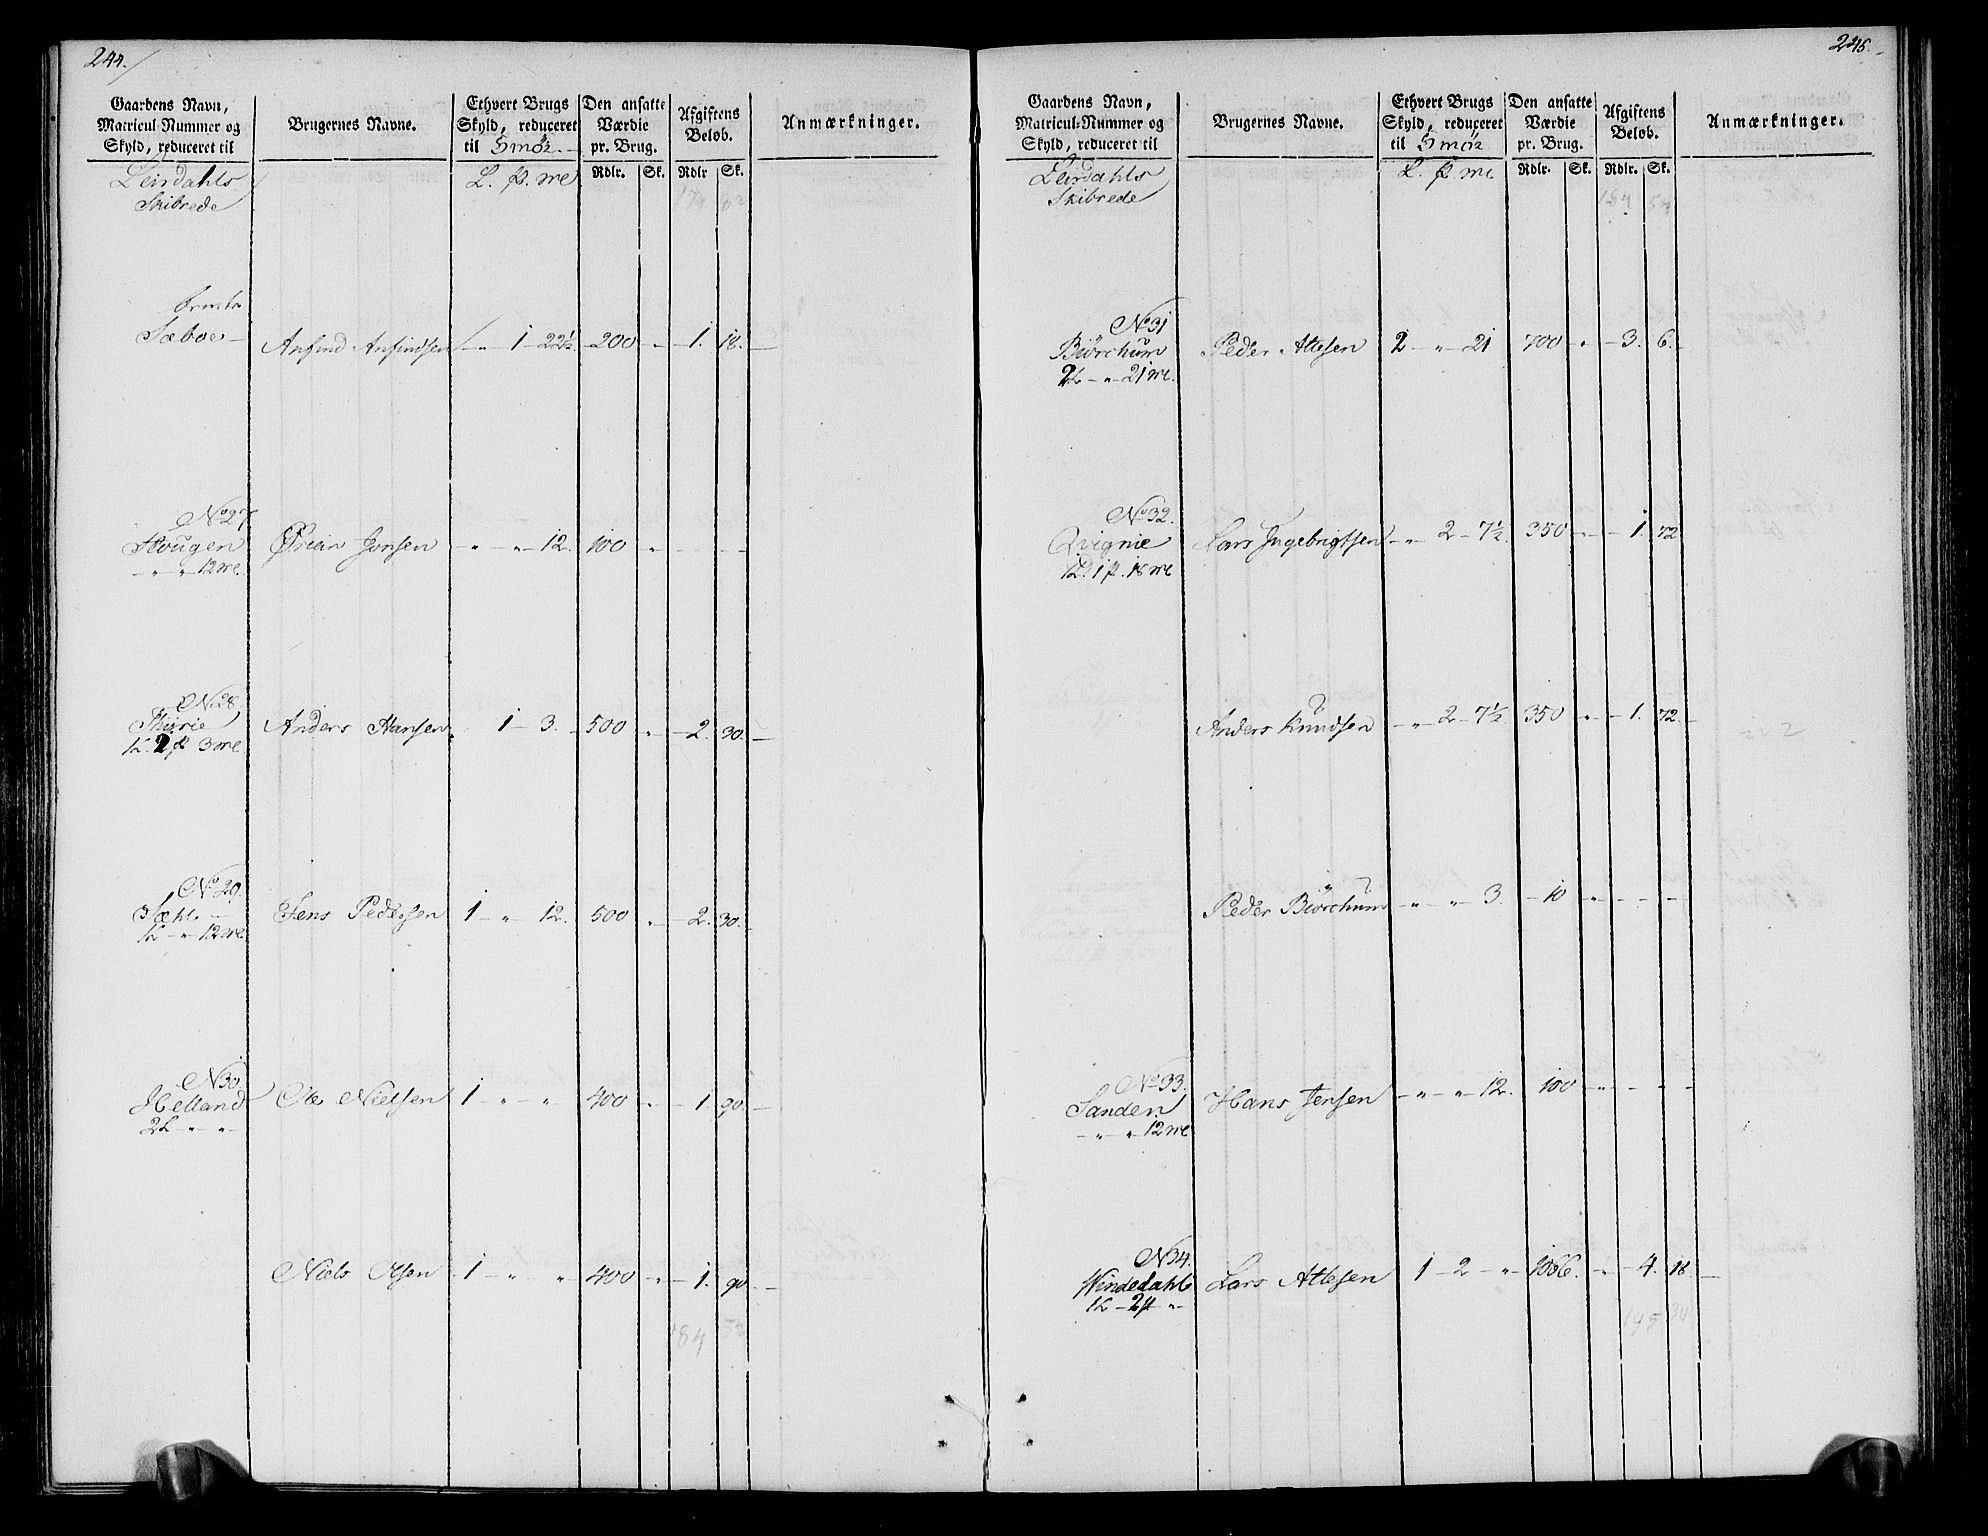 244.
Gaardens Navn, Matricul-Nummer og Skyld, reduceret til
Brugernes Navne.
Ethvert Brugs Skyld, reduceret til Smør.
Den ansatte Værdie pr. Brug.
Afgiftens Beløb.
Anmærkninger.
Leirdahls Skibrede
L. p. mk
Rdlr. Sk. Rdlr Sk.
Sæboe — Anfind Anfindsen — „ 1 22½. 200 „ — 1. 18. —
No 27
Hougen Ørien Jonsen „ „ 12. 100 „ — — —
— „ „ 12 mk.
No 28.
Thürie Anders Hansen. 1 — 3. 500 „ — 2. 30. —
1L. 2p 3 mk
No 29.
Sæhl — Jens Pedersen 1 — „ 12. 500 „ — 2. 30.
1L — „ 12 mk.
No 30.
Helland Ole Nielsen 1 „ „ 400 „ — 1. 90. —
2L — „ „
Niels Olsen 1 — „ „ 400 „ — 1. 90. —
184
245.
Gaardens Navn, Matricul-Nummer og Skyld, reduceret til
Brugernes Navne.
Ethvert Brugs Skyld, reduceret til Smør
Den ansatte Værdie pr. Brug.
Afgiftens Beløb.
Anmærkninger.
Leirdahls Skibrede
L. p mk
Rdlr. Sk. Rdlr. Sk.
184 54
No 31
Biørchum Peder Attesen 2 — „ 21 700 „ — 3. 6. —
2L — „ 21 mk.
No 32.
Qvignie Lars Ingebrigtsen — „ 2 — 7½. 350 „ — 1. 72
1L. 1 p. 18 mk
Anders Knudsen — „ 2 — 7½ 350 „ — 1. 72. —
Peder Biørchum — „ „ 3. — 10 „ — — —
No 33.
Sanden Hans Jensen — „ — „ 12. 100 „ — — —
— „ — „ 12 mk
No 34.
Windedahl Lars Attesen 1 — 2 — „ 1066. „ — 4. 18. —
1L — 2p „
195